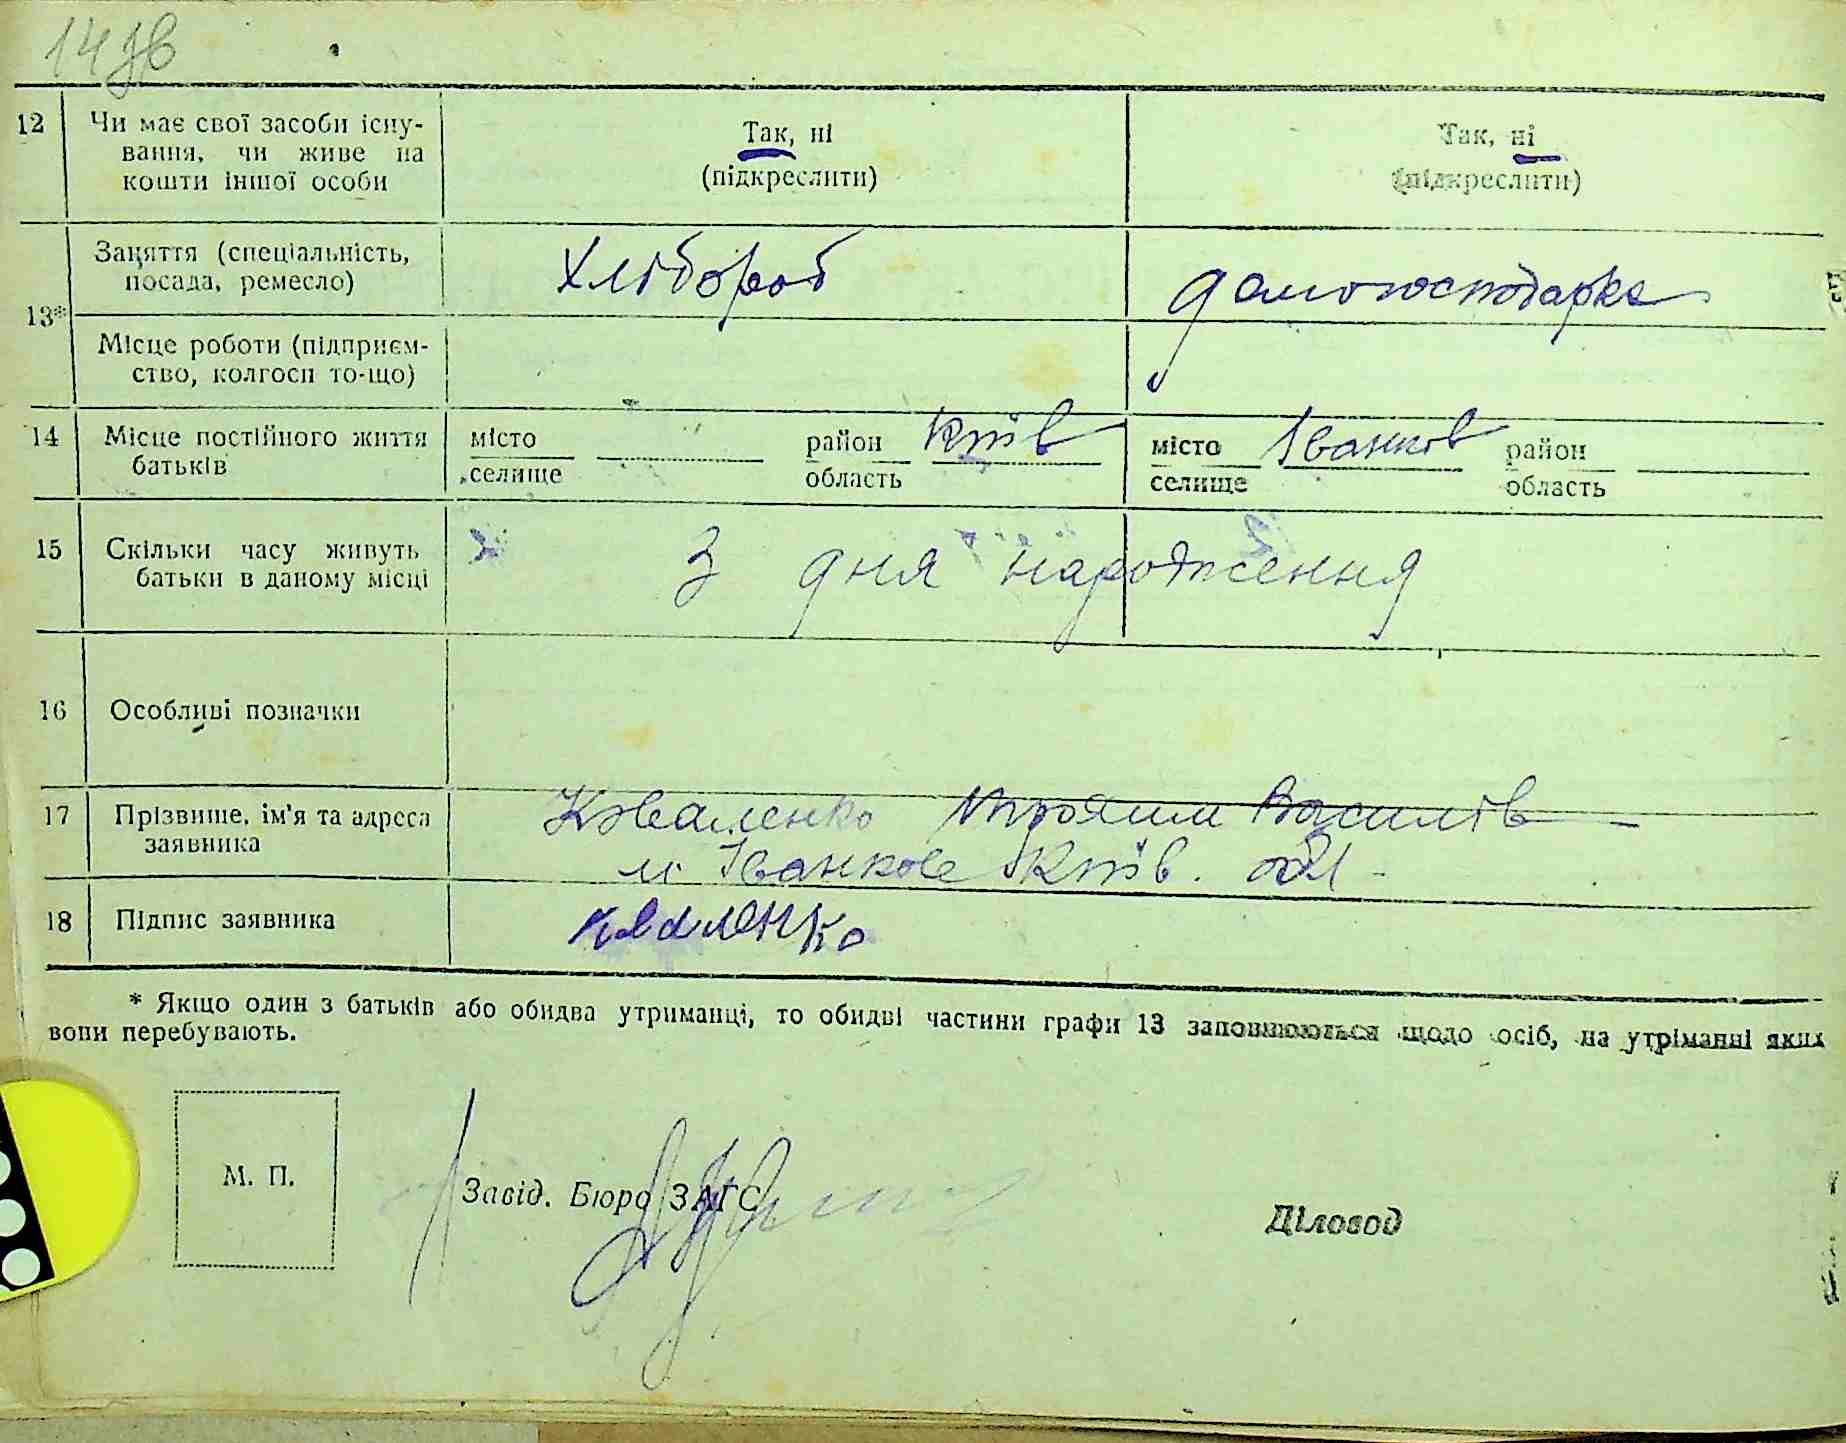 14 зв
12 Чи має свої засоби існу-
вання, чи живе на
кошти іншої особи
Так, ні
(підкреслити)
Так, ні
(підкреслити)
13*
Заняття (спеціальність,
посада, ремесло)
Хлібороб
домогосподарка
Місце роботи (підприєм-
ство, колгосп то-що)
14 Місце постійного життя
батьків
місто
селище
район Київ
область
місто Іванків
селище
район
область
15 Скільки часу живуть
батьки в даному місці
З дня народження
16 Особливі позначки
17 Прізвище, ім'я та адреса
заявника
Коваленко Василів
м Іванков Київ. обл
18 Підпис заявника
Коваленко
* Якщо один з батьків або обидва утриманці, то обидві частини графи 13 заповнюються щодо осіб, на утріманні яких
вони перебувають.
М. П.
Завід. Бюро ЗАГС
Діловод